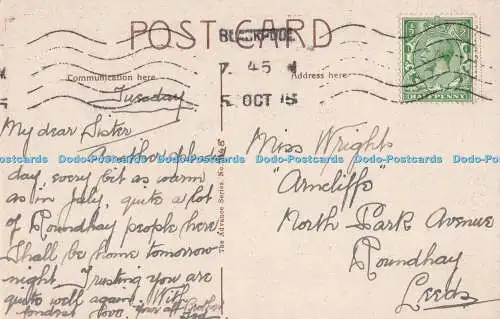 POST CARD
BLACKPOOL
7. 45 M
5 OCT 15
Communication here.
Address here
Tuesday
My dear Sister
Another glorious
day, every bit as warm
as in July, quite a lot
of Roundhay people here
Shall be home tomorrow
night. Trusting you are
quite well again. With
fondest love, your aff Brother
The Advance Series. No.
Miss Wrights
"Arncliffe"
North Park Avenue
Roundhay
Leeds
Dodo-Postcards Dodo-Postcards Dodo-Postcards Dodo-Postcards Dodo-Postcards Dodo-Postcards